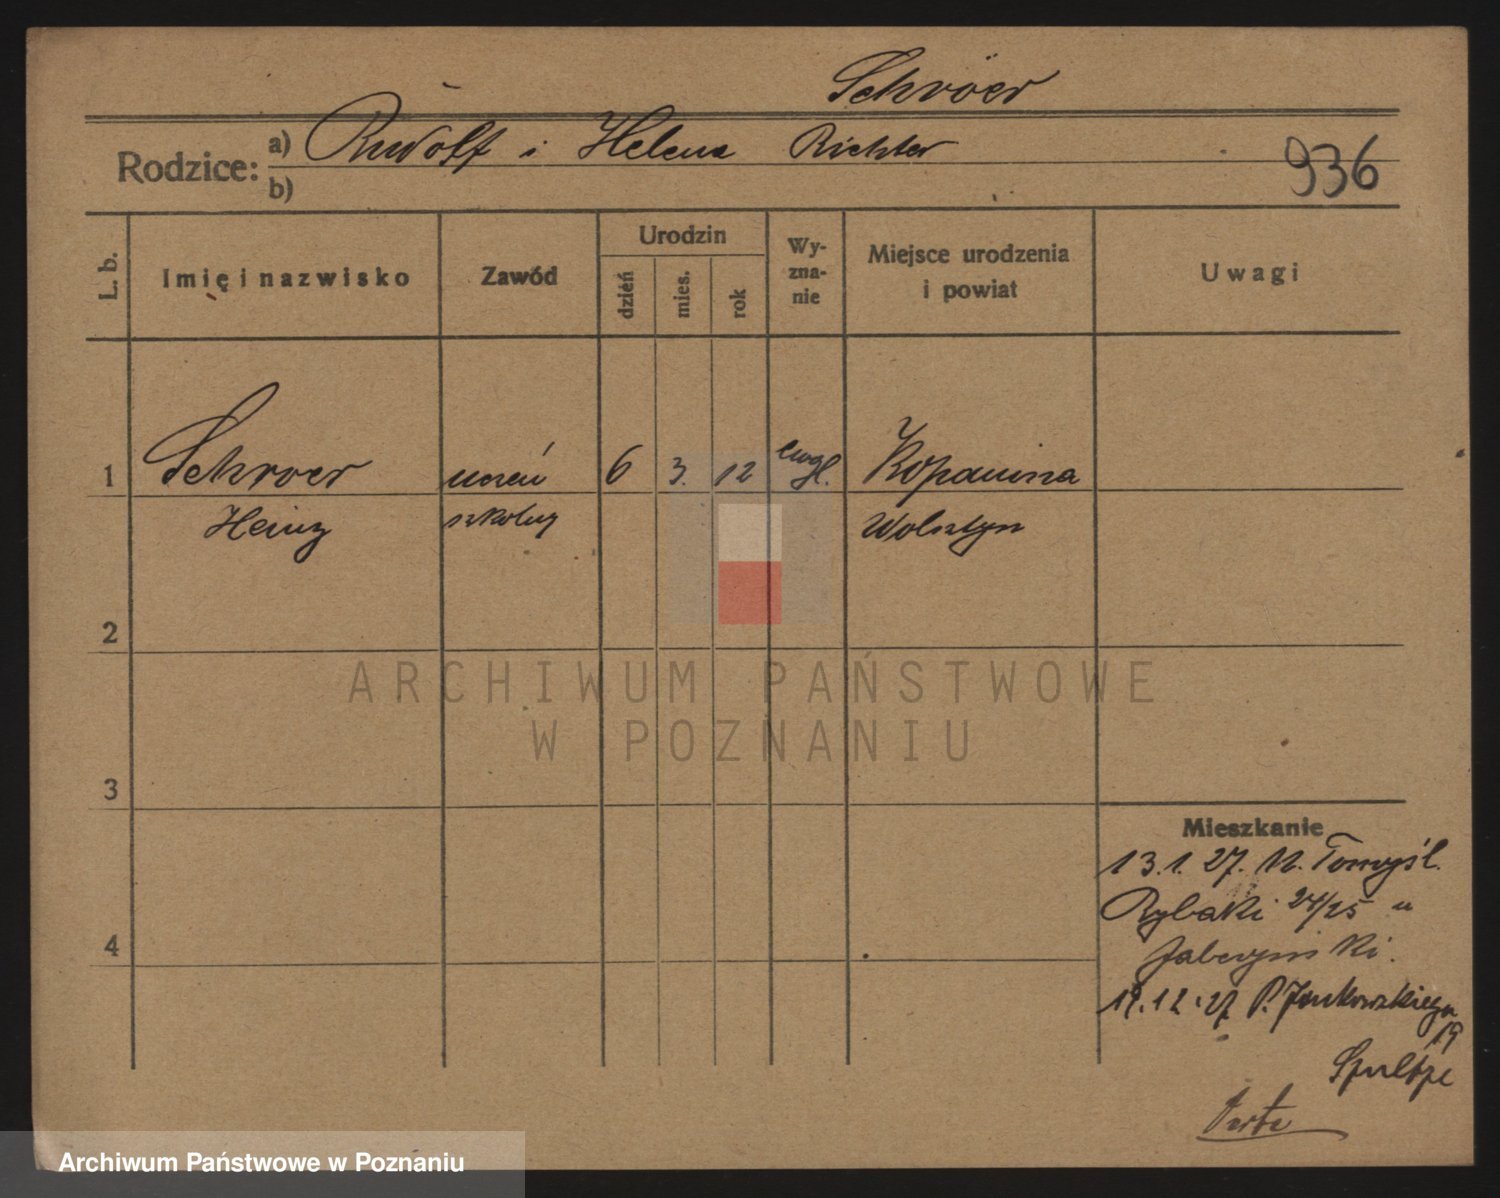 Schröer
Rodzice: a) Rudolf i Helena Richter
b)
936
L. b. Imię i nazwisko Zawód Urodzin dzień mies. rok Wyznanie Miejsce urodzenia i powiat Uwagi
1 Schroer uczeń 6 3. 12 ewgl. Kopanina
Heinz szkolny Wolsztyn
2
ARCHIWUM PAŃSTWOWE
W POZNANIU
3
Mieszkanie
13.1.27. N. Tomyśl.
Rybaki 24/25 u
4
19.12.27 P. Jankowskiego
19
Archiwum Państwowe w Poznaniu